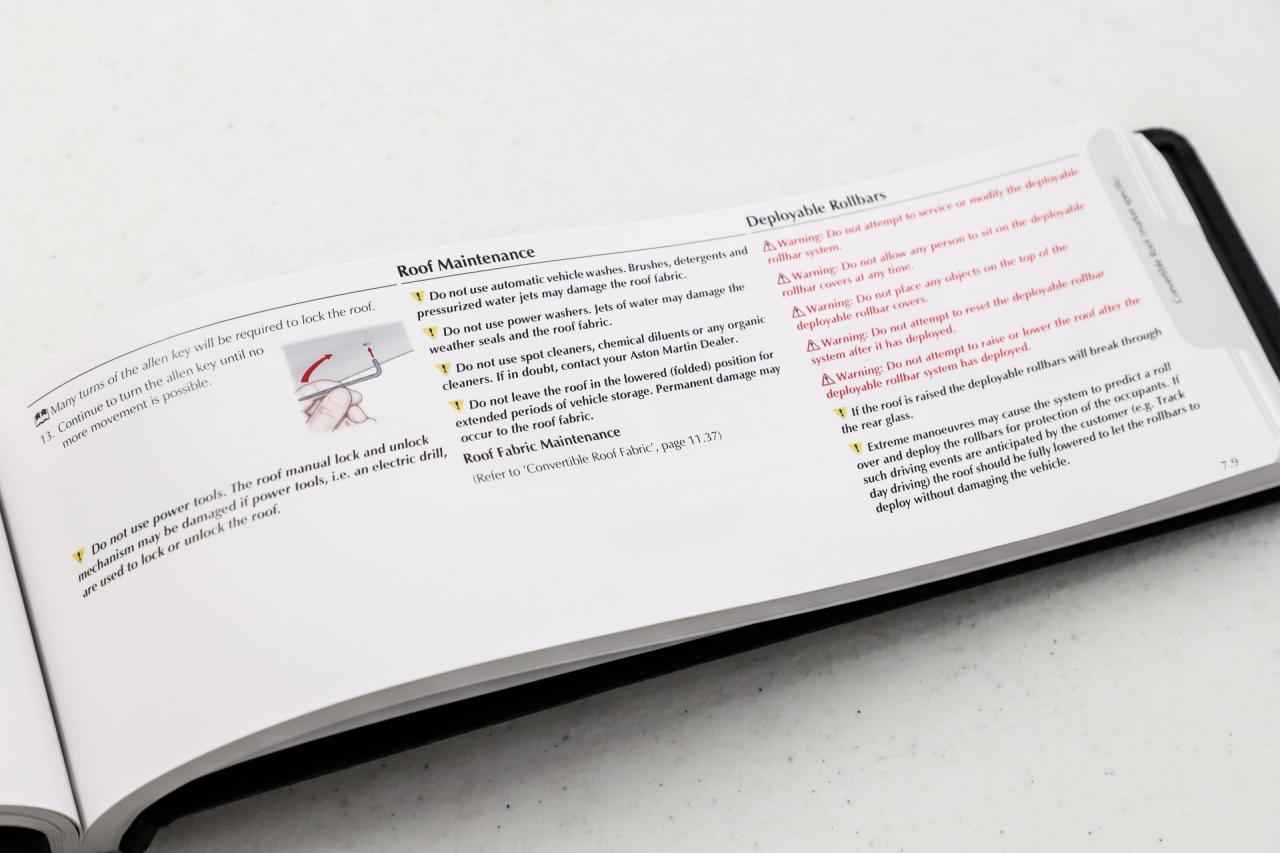 Many turns of the allen key will be required to lock the roof.
13. Continue to turn the allen key until no
more movement is possible.
Do not use power tools. The roof manual lock and unlock
mechanism may be damaged if power tools, i.e. an electric drill,
are used to lock or unlock the roof.
Roof Maintenance
Do not use automatic vehicle washes. Brushes, detergents and
pressurized water jets may damage the roof fabric.
Do not use power washers. Jets of water may damage the
weather seals and the roof fabric.
Do not use spot cleaners, chemical diluents or any organic
cleaners. If in doubt, contact your Aston Martin Dealer.
Do not leave the roof in the lowered (folded) position for
extended periods of vehicle storage. Permanent damage may
occur to the roof fabric.
Roof Fabric Maintenance
(Refer to 'Convertible Roof Fabric', page 11.37)
Deployable Rollbars
Warning: Do not attempt to service or modify the deployable
rollbar system.
Warning: Do not allow any person to sit on the deployable
rollbar covers at any time.
Warning: Do not place any objects on the top of the
deployable rollbar covers.
Warning: Do not attempt to reset the deployable rollbar
system after it has deployed.
Warning: Do not attempt to raise or lower the roof after the
deployable rollbar system has deployed.
If the roof is raised the deployable rollbars will break through
the rear glass.
Extreme manoeuvres may cause the system to predict a roll
over and deploy the rollbars for protection of the occupants. If
such driving events are anticipated by the customer (e.g. Track
day driving) the roof should be fully lowered to let the rollbars to
deploy without damaging the vehicle.
Convertible Roof (market specific)
7.9